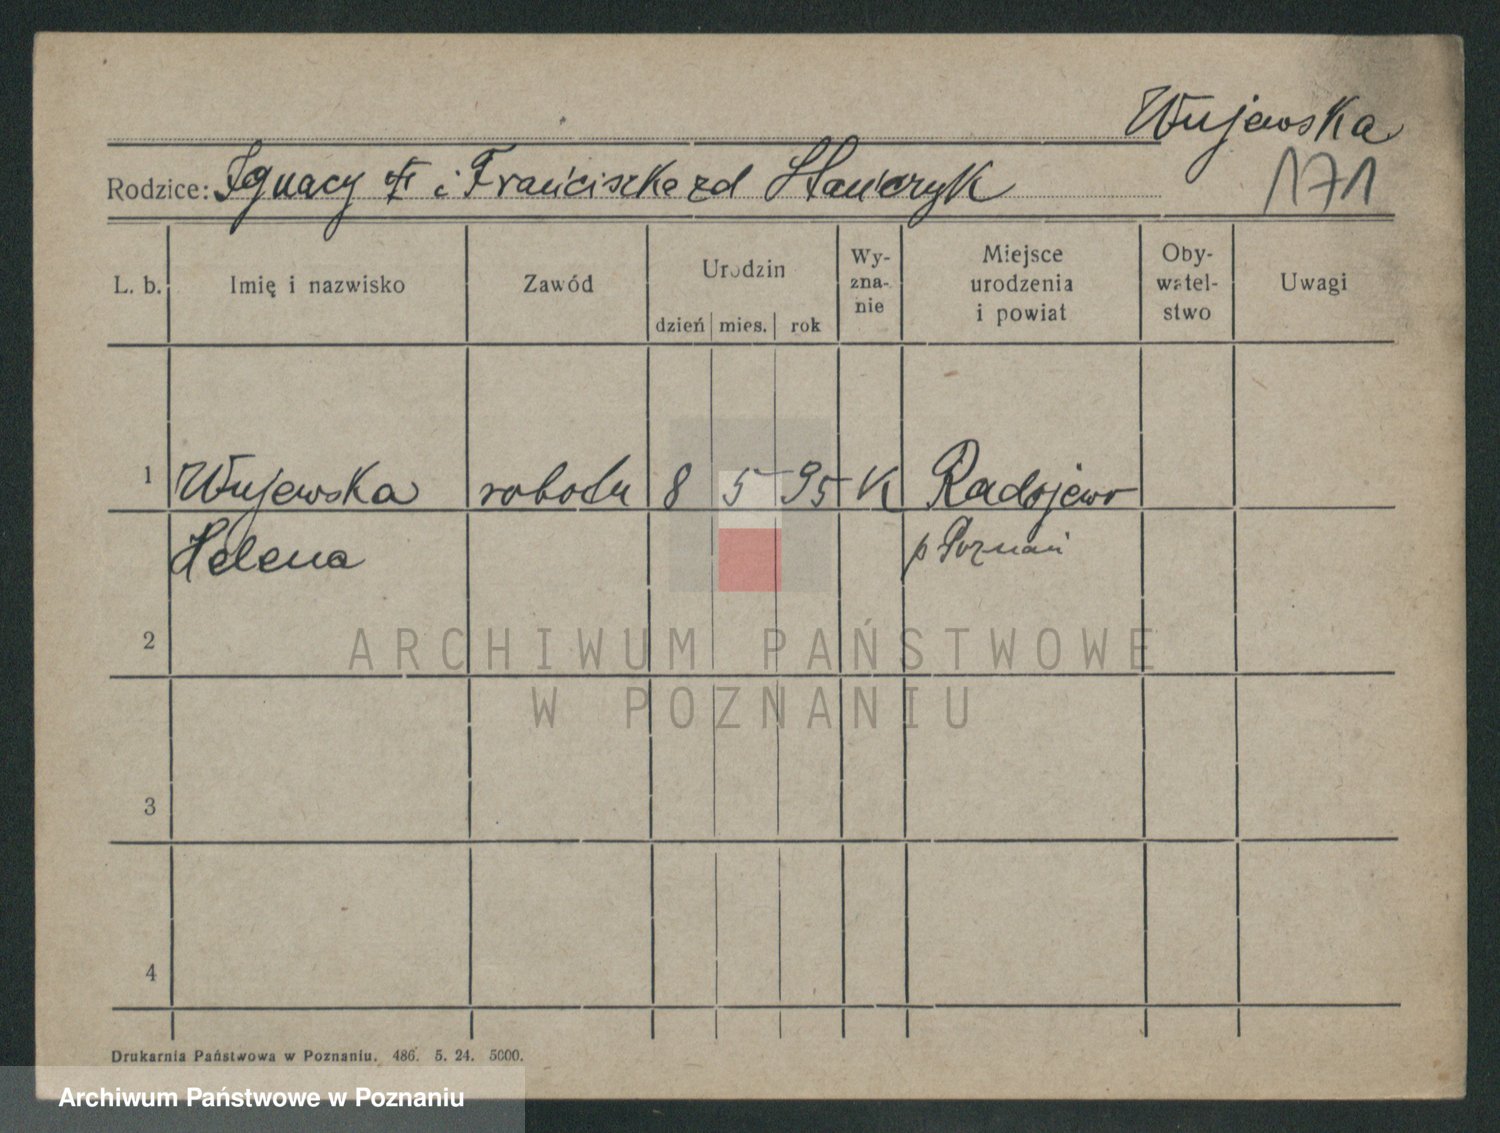 Wujewska
Rodzice: Ignacy i Franciszka zd Stańczyk
171
L. b. Imię i nazwisko Zawód Urodzin dzień mies. rok Wy-zna-nie Miejsce urodzenia i powiat Oby-watel-stwo Uwagi
1 Wujewska robotn 8 5 95 K Radojewo
Helena p Poznań
2
ARCHIWUM PAŃSTWOWE
W POZNANIU
3
4
Drukarnia Państwowa w Poznaniu. 486. 5. 24. 5000.
Archiwum Państwowe w Poznaniu